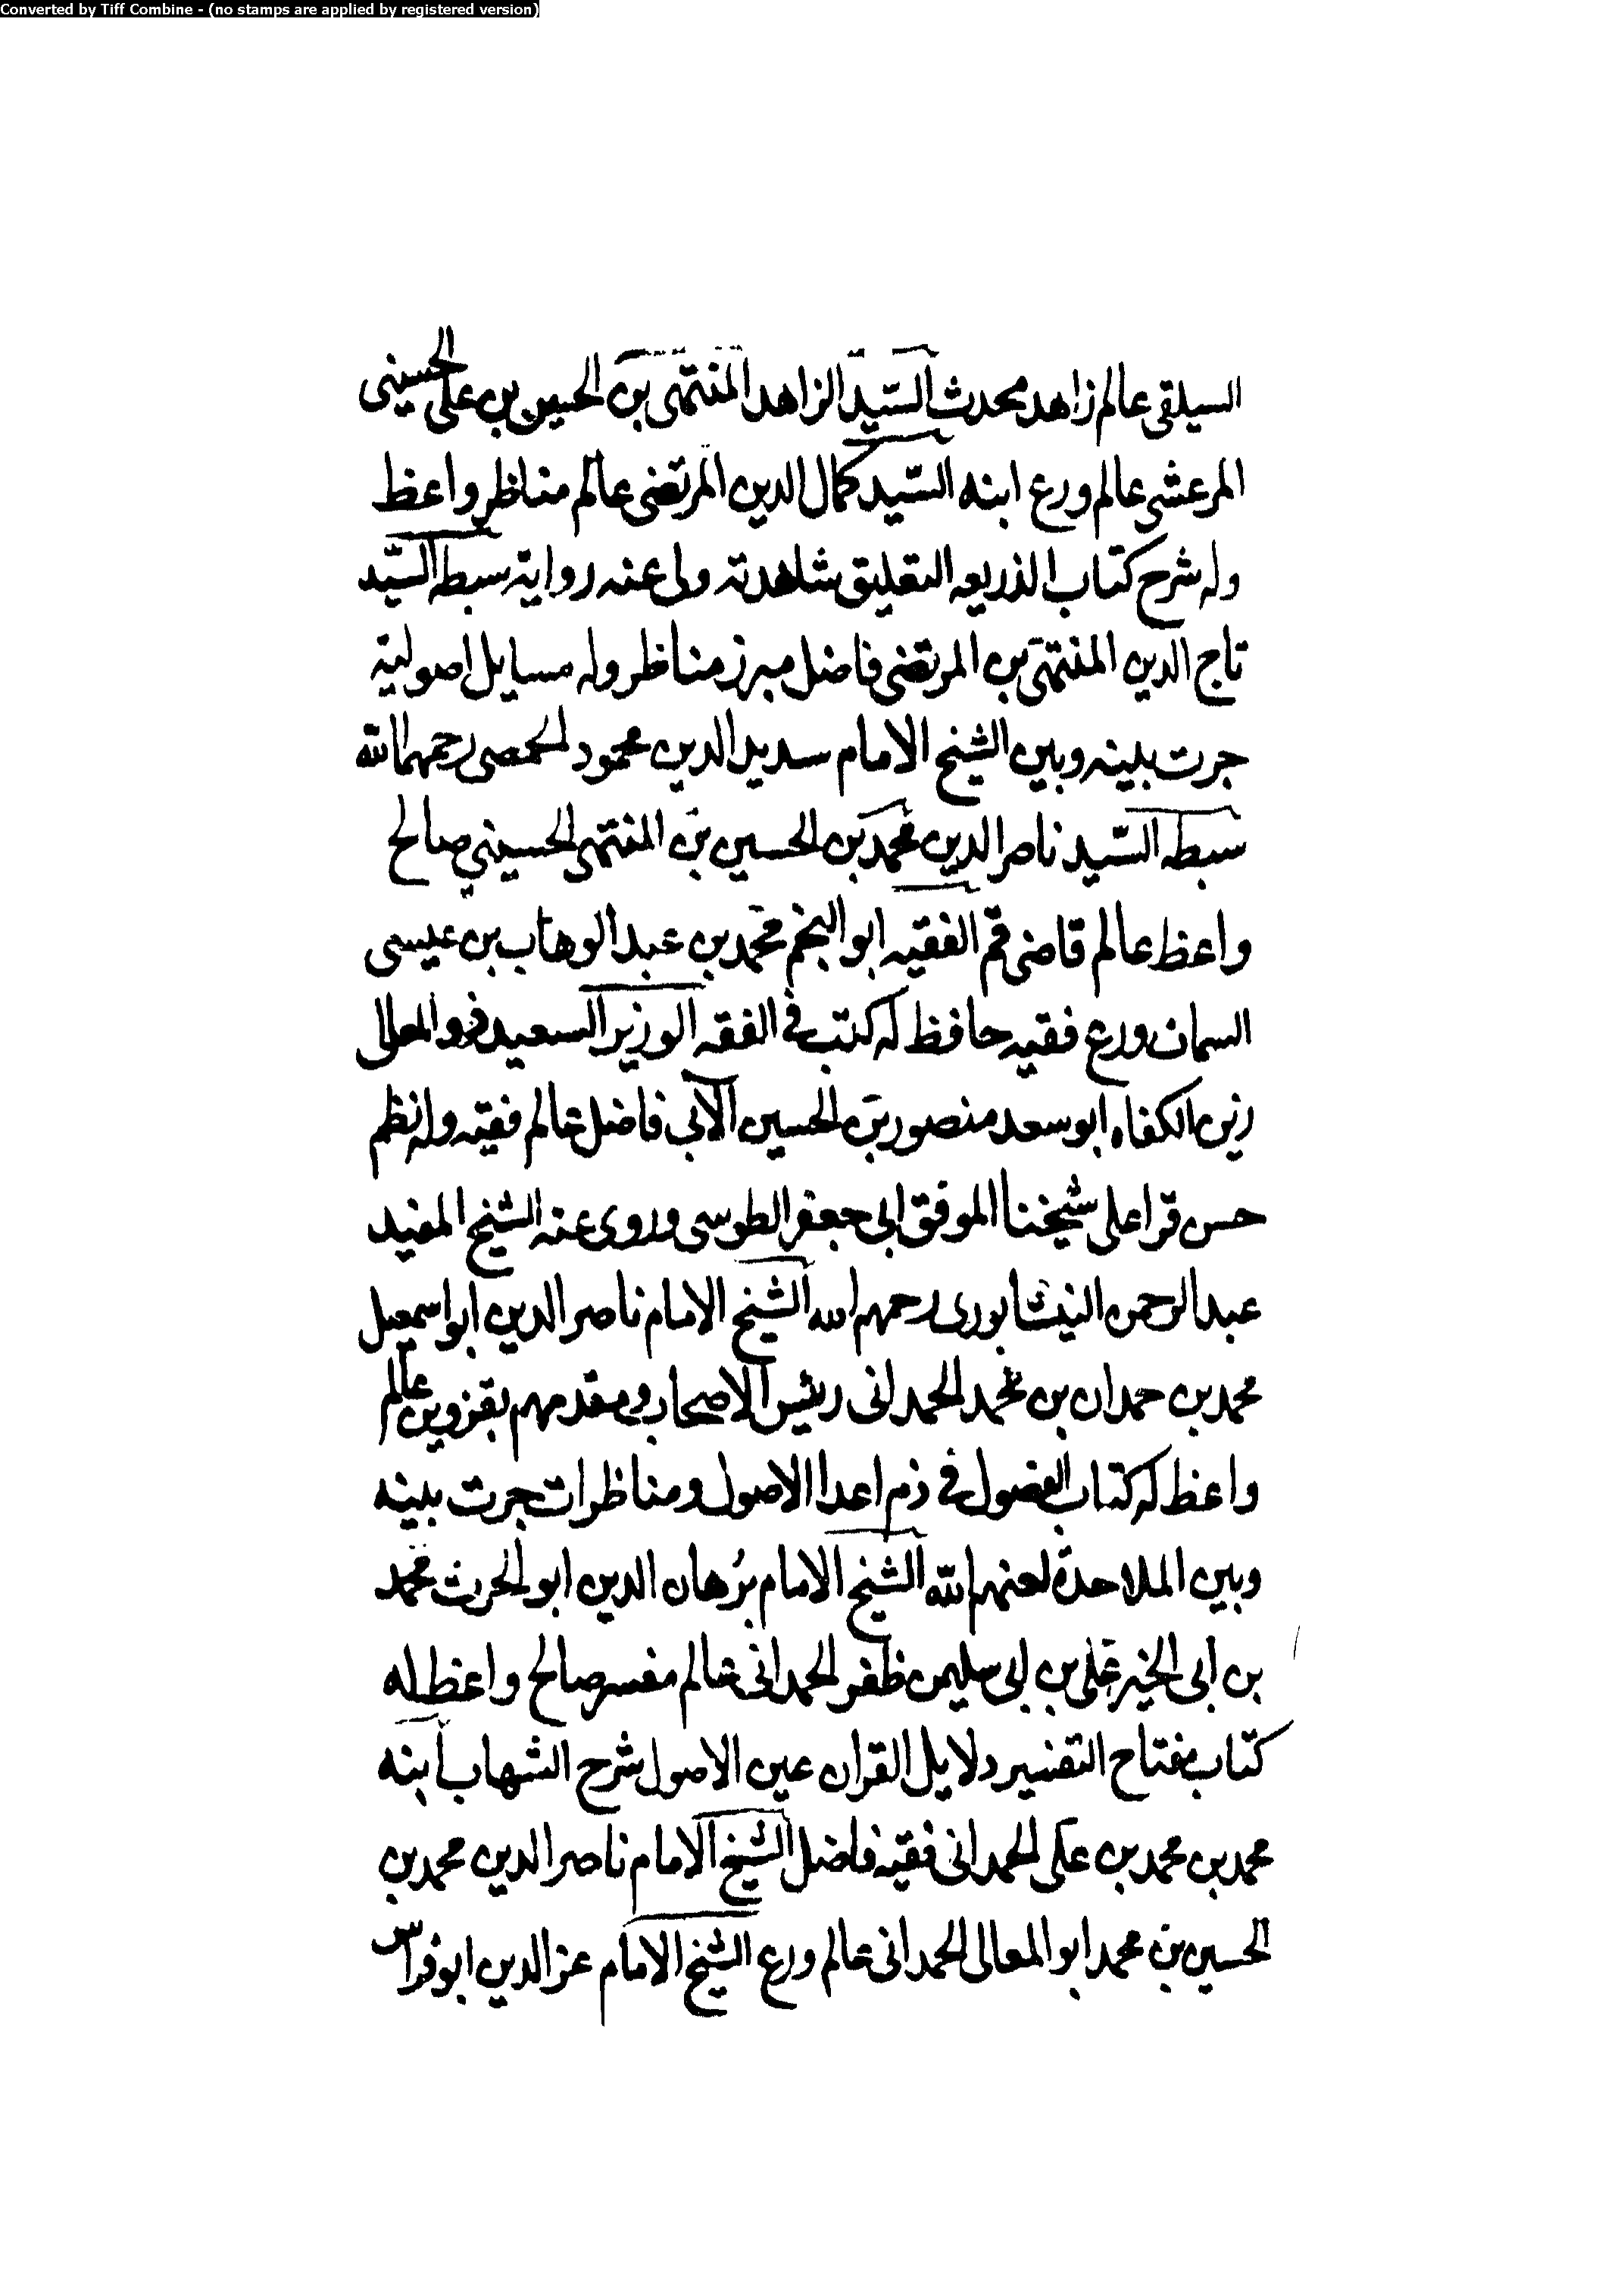 Converted by Tiff Combine - (no stamps are applied by registered version)
السيلقى عالم زاهد محدث السّيد الزاهد المنتهى بن الحسين بن على الحسينى
المرعشى عالم ورع ابنه السّيد كمال الدين المرتضى عالم مناظر واعظ
وله شرح كتاب الذريعه التعليق شاهدته ولى عنه رواية سبطه السّيد
تاج الدين المنتهى بن المرتضى فاضل مبرز مناظر وله مسايل اصولية
جرت بينه وبين الشيخ الامام سديد الدين محمود الحمصى رحمهما الله
سبطه السّيد ناصر الدين محمد بن الحسين بن المنتهى الحسيني صالح
واعظ عالم قاضى قم الفقيه ابو النجم محمد بن عبد الوهاب بن عيسى
السمان ورع فقيه حافظ له كتب في الفقه الوزير السعيد ذو المعالى
زين الكفاه ابو سعد منصور بن الحسين الآبى فاضل عالم فقيه وله نظم
حسن قرا على شيخنا الموفق ابى جعفر الطوسى وروى عنه الشيخ المفيد
عبد الرحمن النيشابورى رحمهم الله الشيخ الامام ناصر الدين ابو اسمعيل
محمد بن حمدان بن محمد الحمدانى رئيس الاصحاب ومقدمهم بقزوين عالم
واعظ له كتاب الفصول في ذم اعدا الاصول ومناظرات جرت بينه
وبين الملاحدة لعنهم الله الشيخ الامام بُرهان الدين ابو الحرث محمد
بن ابى الخير على بن ابى سليمن ظفر الحمدانى عالم مفسر صالح واعظ له
كتاب مفتاح التفسير دلايل القران عين الاصول شرح الشهاب ابنه
محمد بن محمد بن على الحمدانى فقيه فاضل الشيخ الامام ناصر الدين محمد بن
الحسين بن محمد ابو المعالى الحمدانى عالم ورع الشيخ الامام عز الدين ابو فراس